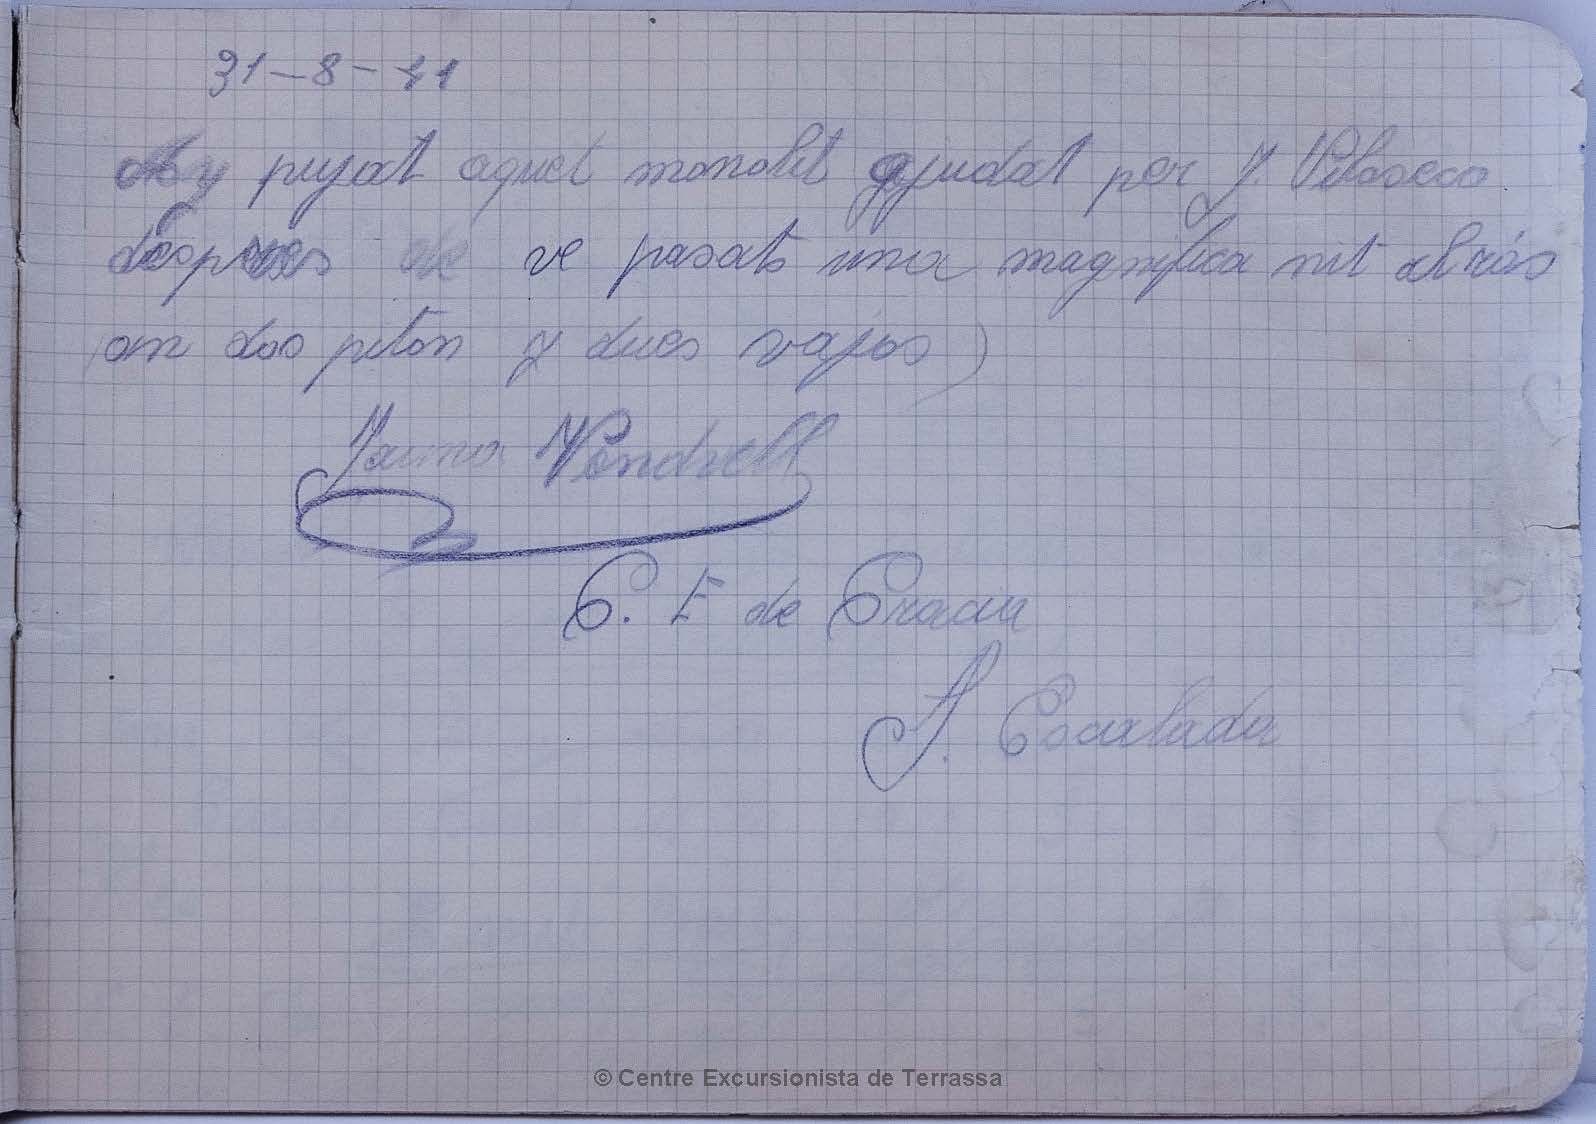 31-8-41
pujat aquet monolit ajudat per J. Vilaseca
despues de ve pasats una magnifica nit al ras
on dos piton y dues vajas)
Jauma Vendrell
C. E de Gracia
J. Escalada
© Centre Excursionista de Terrassa